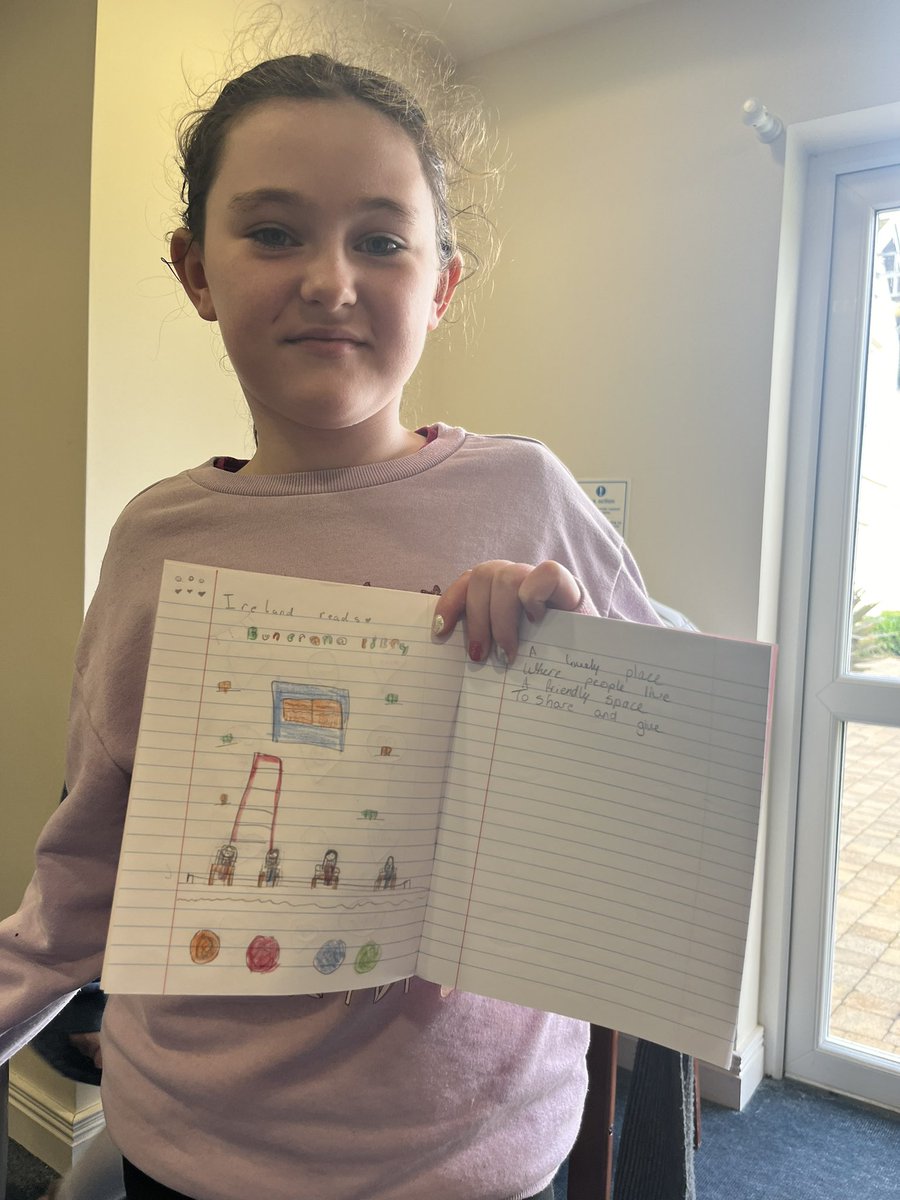 Ireland reads
Buncrana
A lovely place
Where people live
A friendly space
To share and give